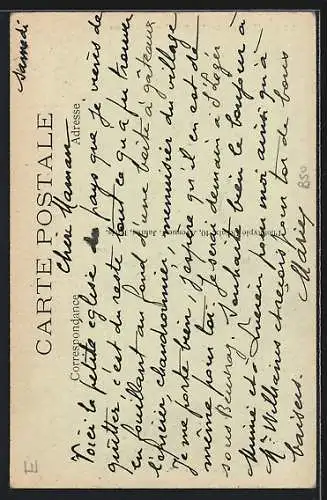 Samedi
CARTE POSTALE
Correspondance
Adresse
Cher Maman
Voici la petite église du pays que je viens de
quitter c'est du reste tout ce qu'a pu trouver
en fouillant au fond d'une boîte à gâteaux
l'épicier chaudronnier menuisier du village
Je me porte bien, j'espère qu'il en est de
même pour toi, je serai demain à St Léger
sous Beuvray. Souhaite bien le bonjour à
Mimie et à Lucien pour moi ainsi qu'à
Mr Wilhems et reçois pour toi de bons
baisers.
Marie
B50
E